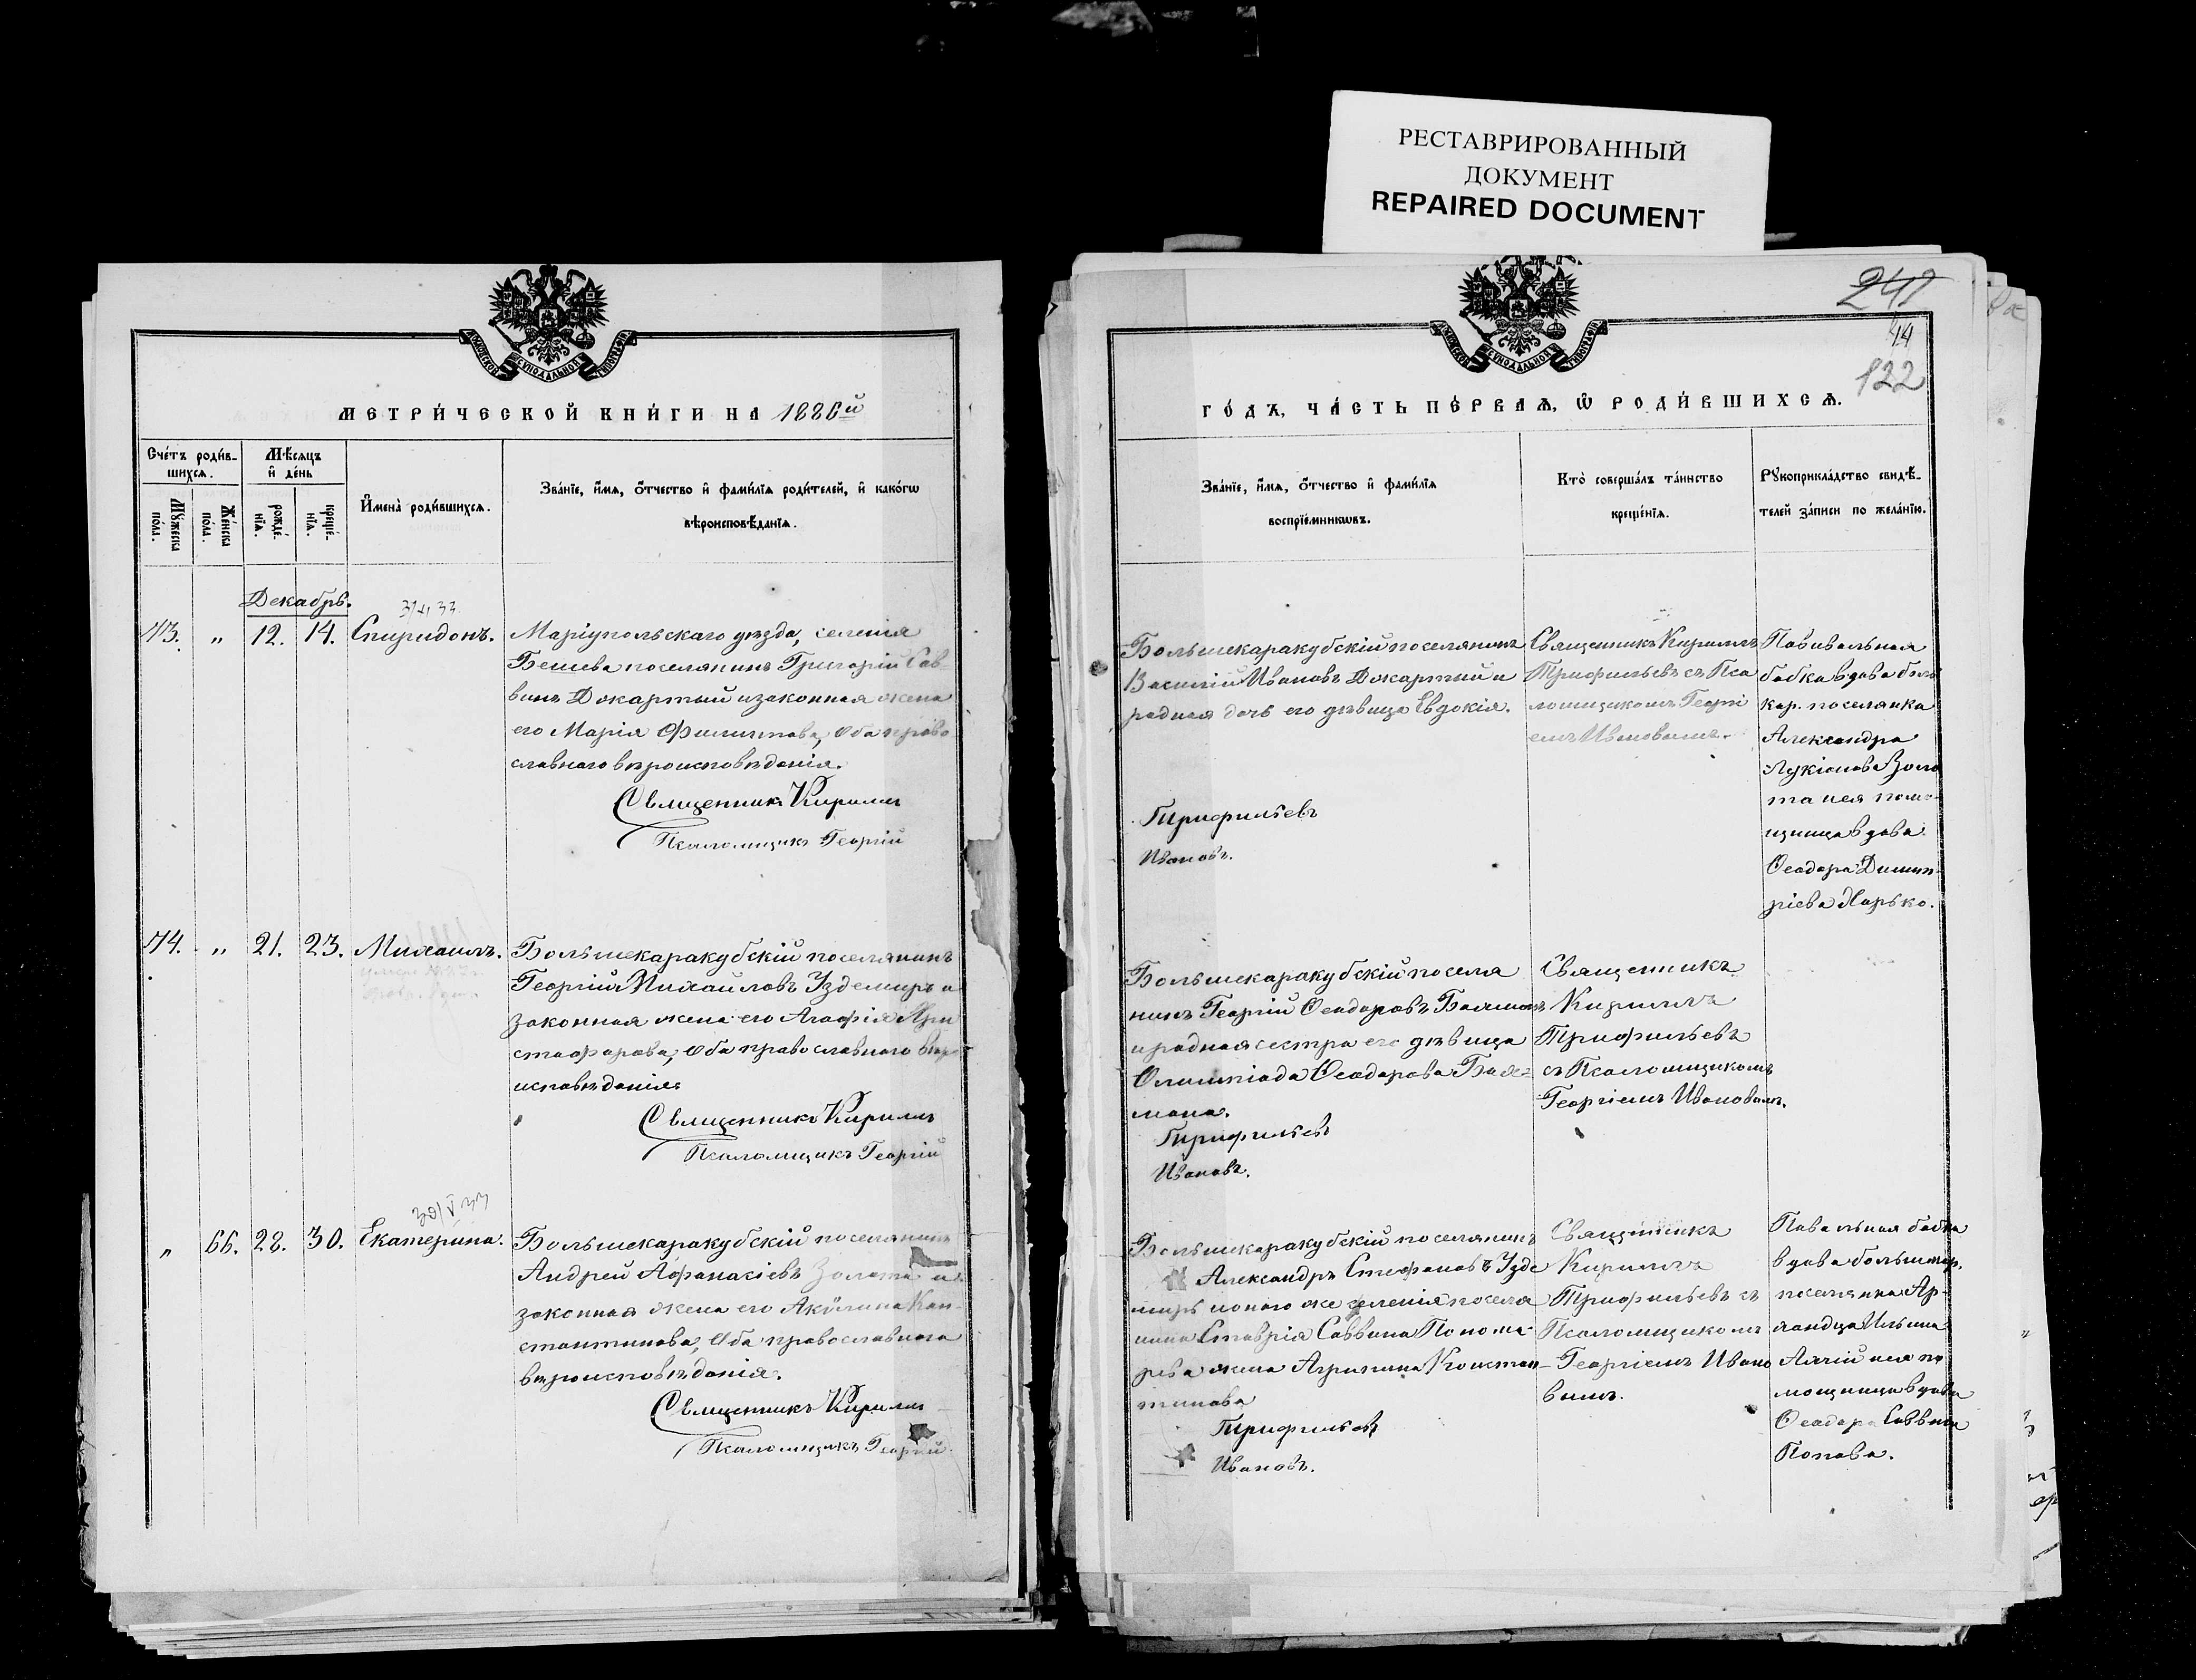 РЕСТАВРИРОВАННЫЙ
ДОКУМЕНТ
REPAIRED DOCUMENT
МЕТРИ́ЧЕСКОЙ КНИ́ГИ НА 1886й
Сче́тъ роди́в-
шихсѧ.
Мѣ́сѧцъ
и҆ де́нь
Мꙋ́жеска
по́ла.
Же́нска
по́ла.
рожде́-
нїѧ.
креще́-
нїѧ.
И҆мена̀ роди́вшихсѧ.
Зва́нїе, и҆́мѧ, ѻ҆́тчество и҆ фами́лїѧ роди́телей, и҆ како́гѡ
вѣроисповѣ́данїѧ.
Декабрь.
73. „ 12. 14. Спиридонъ.
Маріупольскаго уѣзда, селенія
Бешева поселянинъ Григорій Сав-
винъ Докартый и законная жена
его Марія Филиппова, оба право
славнаго вѣроисповѣданія.
Священникъ Кириллъ
Псаломщикъ Георгій
74. „ 21. 23. Михаилъ.
Большекаракубскій поселянинъ
Георгій Михайловъ Уздемиръ и
законная жена его Агафія Хри
стофорова, оба православнаго вѣро
исповѣданія.
Священникъ Кириллъ
Псаломщикъ Георгій
„ 66. 28. 30. Екатерина.
Большекаракубскій поселянинъ
Андрей Афанасіевъ Золота и
законная жена его Акилина Кон-
стантинова, оба православнаго
вѣроисповѣданія.
Священникъ Кириллъ
Псаломщикъ Георгій
241
44
122
ГО́ДЪ, ЧА́СТЬ ПЕ́РВАѦ, Ѡ РОДИ́ВШИХСѦ.
Зва́нїе, и҆́мѧ, ѻ҆́тчество и҆ фами́лїѧ
воспрїе́мникѡвъ.
Кто̀ соверша́лъ та́инство
креще́нїѧ.
Рꙋкоприкла́дство свидѣ́-
телей за́писи по жела́нїю.
Большекаракубскій поселянинъ
Василій Ивановъ Докартый и
родная дочь его дѣвица Евдокія.
Трифильевъ
Ивановъ.
Священникъ Кириллъ
Трифильевъ съ Пса
ломщикомъ Георгі
емъ Ивановымъ.
Повивальная
бабка вдова боль
кар. поселянка
Александра
Лукіанова Золо
та и ея помо-
щница вдова
Ѳеодора Димит
ріева Харько.
Большекаракубскій поселя
нинъ Георгій Ѳеодоровъ
и родная сестра его дѣвица
Олимпіада Ѳеодорова
Трифильевъ
Ивановъ.
Священникъ
Кириллъ
Трифильевъ
съ Псаломщикомъ
Георгіемъ Ивановымъ.
Большекаракубскій поселянинъ
Александръ Стефановъ Узде
миръ и того же селенія поселя
нина Ставрія Саввина Понома-
рева жена Агрипина Констан-
тинова
Трифильевъ
Ивановъ.
Священникъ
Кириллъ
Трифильевъ съ
Псаломщикомъ
Георгіемъ Ивано
вымъ.
бабка
вдова
поселянка
Ильина
и ея по
мощница вдова
Ѳеодора Саввина
Попова.